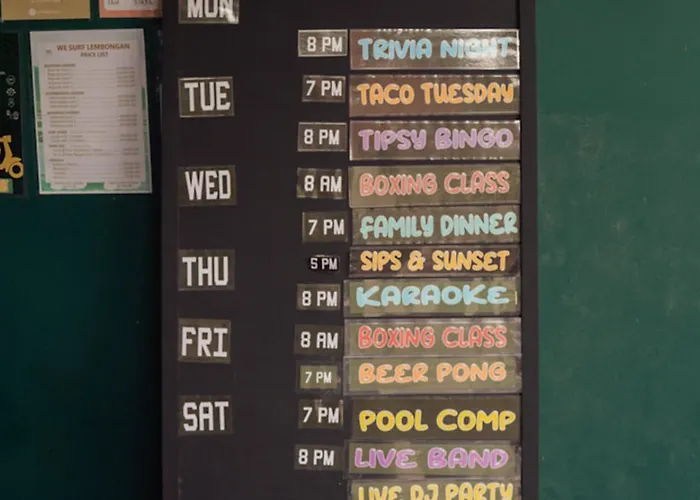 MON
8 PM TRIVIA NIGHT
TUE 7 PM TACO TUESDAY
8 PM TIPSY BINGO
WED 8 AM BOXING CLASS
7 PM FAMILY DINNER
THU 5 PM SIPS & SUNSET
8 PM KARAOKE
FRI 8 AM BOXING CLASS
7 PM BEER PONG
SAT 7 PM POOL COMP
8 PM LIVE BAND
LIVE DJ PARTY
WE SURF LEMBONGAN
PRICE LIST